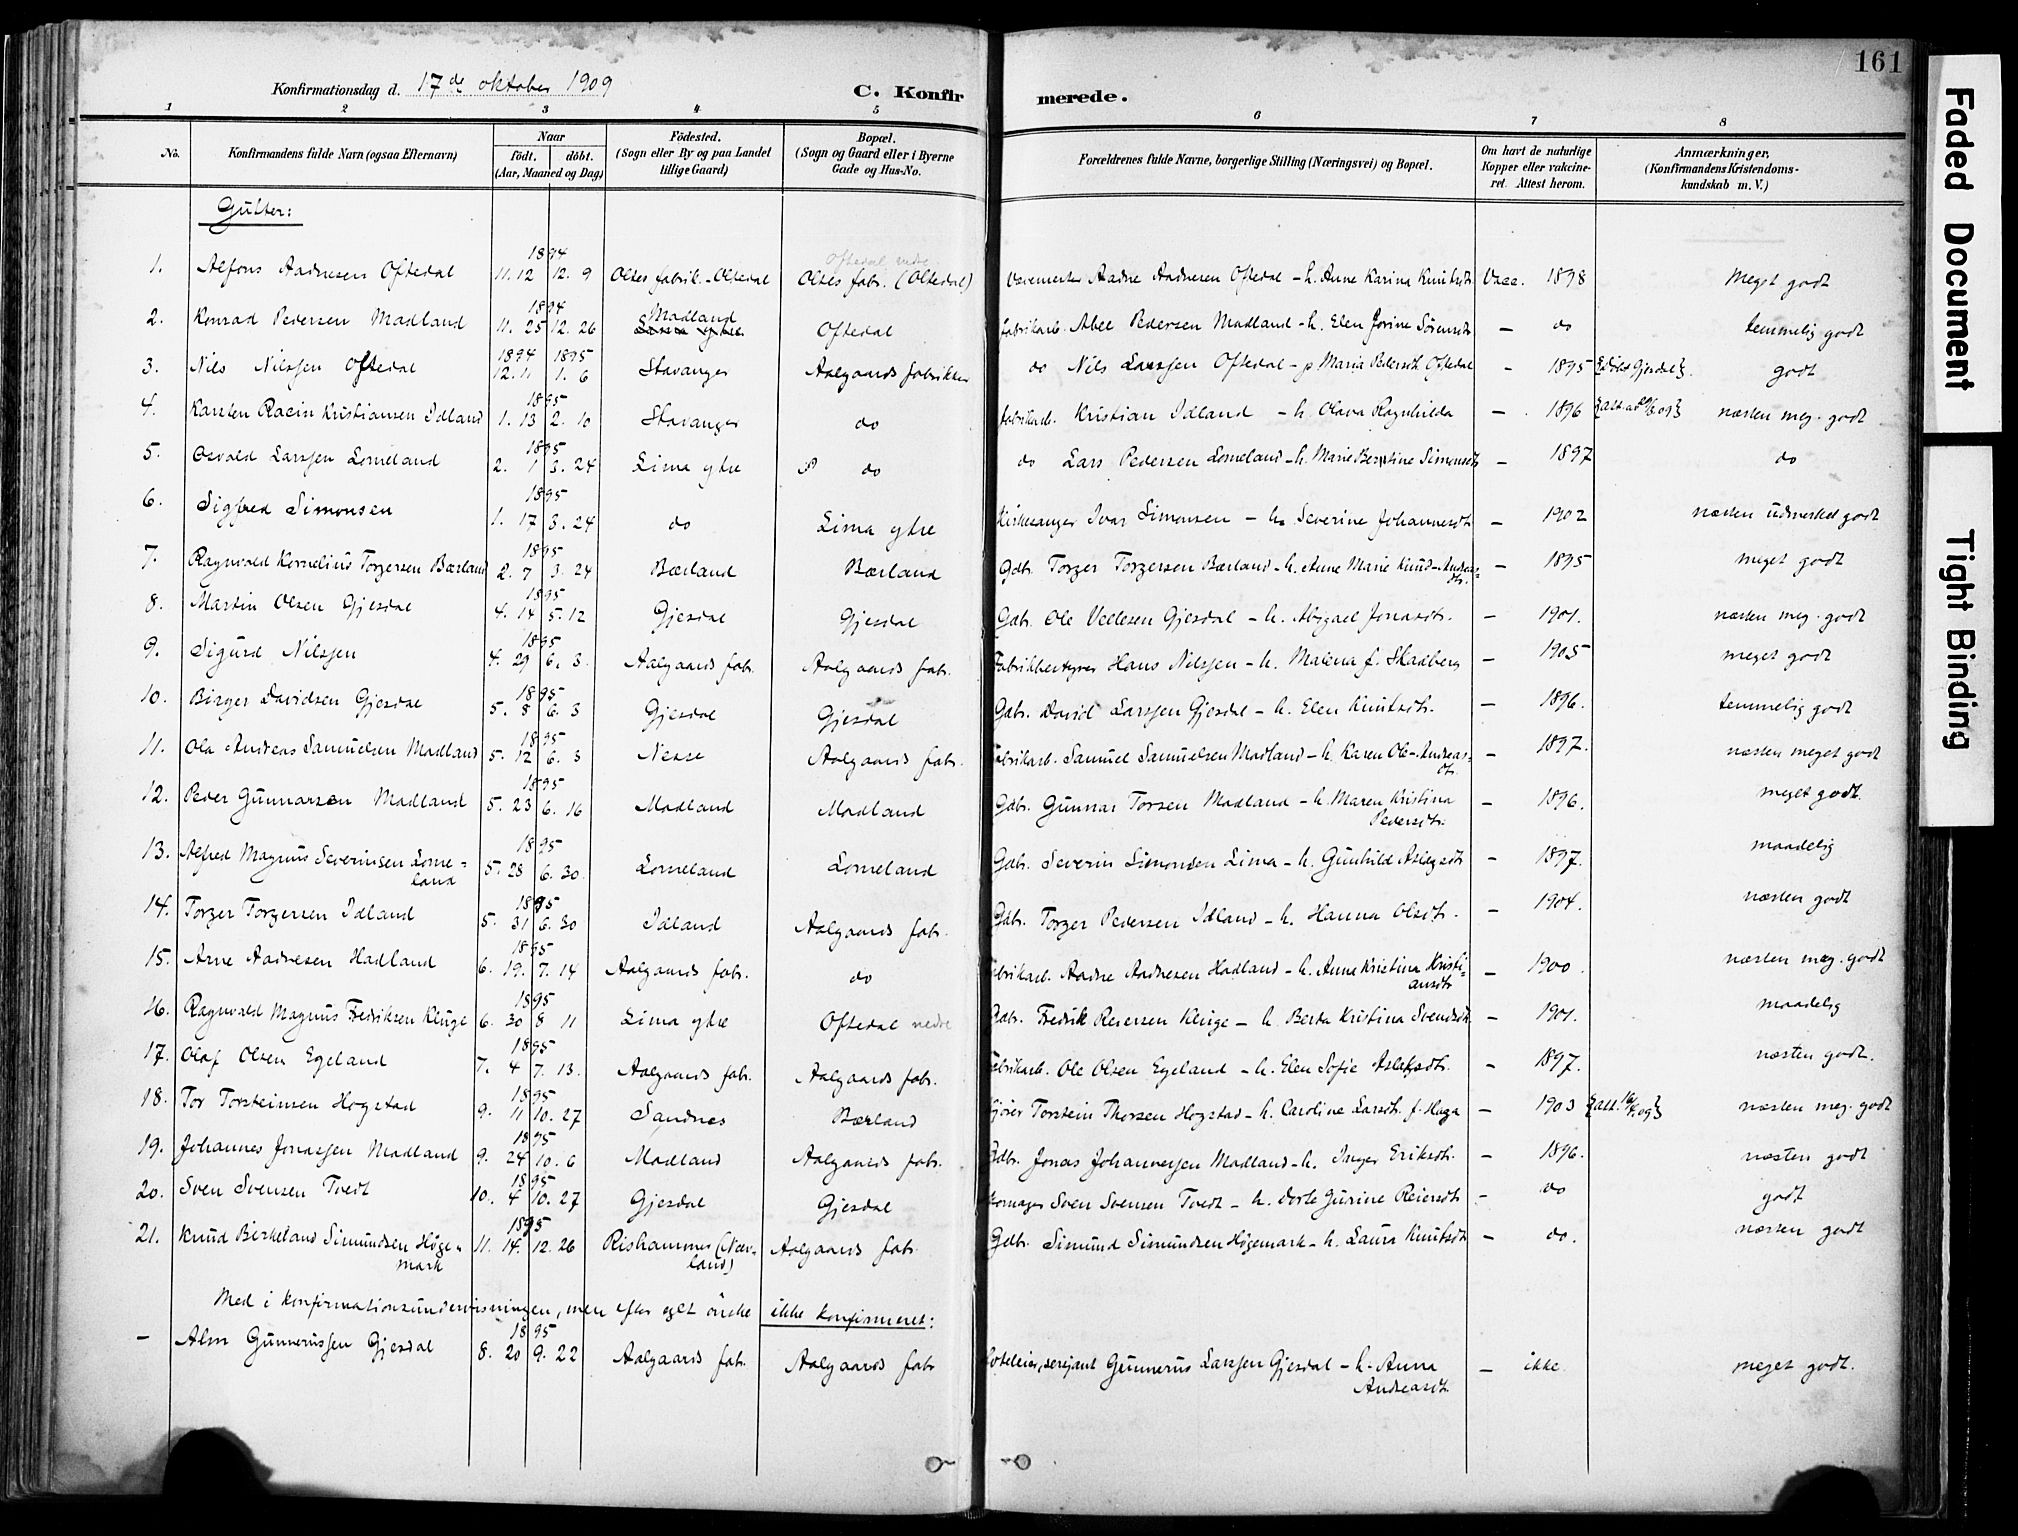 161
Konfirmationsdag d. 17de oktober 1909
C. Konfirmerede.
1 2 3 4 5 6 7 8
No.
Konfirmandens fulde Navn (ogsaa Efternavn)
Naar
födt. döbt.
(Aar, Maaned og Dag)
Födested.
(Sogn eller By og paa Landet
tillige Gaard)
Bopæl.
(Sogn og Gaard eller i Byerne
Gade og Hus-No.
Forældrenes fulde Navne, borgerlige Stilling (Næringsvei) og Bopæl.
Om havt de naturlige
Kopper eller vakcine-
ret. Attest herom.
Anmærkninger,
(Konfirmandens Kristendoms-
kundskab m. V.)
Gutter:
1. Alfons Aadnesen Oftedal 1894 11.12 12.9 Oltes fabrik.-Oltedal Oltes fabr. (Oltedal) Oftedal nedre Aadne Aadnesen Oftedal - h. Anne Karina Knutsdt. Vacc. 1898 Meget godt
2. Konrad Pedersen Madland 1894 11. 25 12. 26 Madland Oftedal fabrikarb. Abel Pedersen Madland - h. Elen Jorine Sörensdt. - do temmelig godt
3. Nils Nilssen Oftedal 1894 1895 12.11 1. 6 Stavanger Aalgaards fabrikker do Nils Larssen Oftedal - Maria Pedersdt. Oftedal - 1895 godt
4. Karsten Racin Kristiansen Idland 1895 1. 13 2. 10 Stavanger do fabrikarb. Kristian Idland - h. Olava Ragnhilda - 1896 næsten meg. godt
5. Osvald Larssen Lomeland 1895 2. 1 3. 24 Lima ytre do do Lars Pedersen Lomeland - h. Marie Berntine Simonsdt. - 1897 do
6. Sigfred Simonsen 1895 1. 17 3. 24 do Lima ytre Kirkesanger Ivar Simonsen - h. Severine Johannesdt. - 1902 næsten udmerket godt
7. Ragnvald Kornelius Torgersen Bærland 1895 2. 7 3. 24 Bærland Bærland Gdbr. Torger Torgersen Bærland - h. Anne Marie Knud-Andreas-
dt. - 1895 meget godt
8. Martin Olsen Gjesdal 1895 4. 14 5. 12 Gjesdal Gjesdal Gdbr. Ole Veelesen Gjesdal - h. Abigael Jonasdt. - 1901. næsten meg. godt
9. Sigurd Nilssen 1895 4. 29 6. 3 Aalgaards fabr. Aalgaards fabr. Fabrikbestyrer Hans Nilssen - h. Malena f. Skadberg - 1905 meget godt
10. Birger Davidsen Gjesdal 1895 5. 8 6. 3 Gjesdal Gjesdal Gdbr. David Larssen Gjesdal - h. Elen Knutsdt. - 1896. temmelig godt
11. Ole Andreas Samuelsen Madland 1895 5. 12 6. 3 Nesse Aalgaards fabr. fabrikarb. Samuel Samuelsen Madland - h. Karen Ole-Andreas-
dt. - 1897. næsten meget godt
12. Peder Gunnarsen Madland 1895 5. 23 6. 16 Madland Madland Gdbr. Gunnar Torsen Madland - h. Maren Kristina
Pedersdt. - 1896. meget godt.
13. Alfred Magnus Severinsen Lome-
land 1895 5. 28 6. 30 Lomeland Lomeland Gdbr. Severin Simonsen Lima - h. Gunhild Aslagsdt. - 1897. maadelig
14. Torger Torgersen Idland 1895 5. 31 6. 30 Idland Aalgaards fabr. Gdbr. Torger Pedersen Idland - h. Hanna Olsdt. - 1904. næsten godt
15. Arne Aadnesen Hadland 1895 6. 19. 7. 14 Aalgaards fabr. do fabrikarb. Aadne Aadnesen Hadland - h. Anne Kristina Kristi-
ansdt. - 1900. næsten meg. godt
16. Ragnvald Magnus Fredriksen Kluge 1895 6. 30 8 11 Lima ytre Oftedal nedre Gdbr. Fredrik Reiersen Kluge - h. Berta Kristina Svendsdt. - 1901. maadelig
17. Olaf Olsen Egeland 1895 7. 4 7. 13. Aalgaards fabr. Aalgaards fabr. fabrikarb. Ole Olsen Egeland - h. Elen Sofie Aslaksdt. - 1897. næsten godt.
18. Tor Torsteinsen Hogstad 1895 9. 11 10. 27 Sandnes Bærland Torstein Thorsen Hogstad - h. Caroline Larsdt. f. Haga - 1903 næsten meg. godt
19. Johannes Jonassen Madland 1895 9. 24 10. 6 Madland Aalgaards fabr. Gdbr. Jonas Johannessen Madland - h. Inger Eriksdt. - 1896. næsten godt
20. Sven Svensen Tvedt 1895 10. 4 10. 27 Gjesdal Gjesdal Sven Svensen Tvedt - h. Dorte Gurine Reiersdt. - do godt
21. Knud Birkeland Simundsen Höge-
mark 1895 11. 14. 12. 26 Rishammer (Nær-
land) Aalgaards fabr. Gdbr. Simund Simundsen Högemark - h. Laura Knutsdt. - do. næsten godt
Med i konfirmationsundervisningen, men efter eget önske ikke konfirmeret:
- Alm Gunnerussen Gjesdal 1895 8. 20 9. 22 Aalgaards fabr. Aalgaards fabr. serjant Gunnerus Larssen Gjesdal - h. Anna
Andreasdt. - ikke. meget godt.
Faded Document
Tight Binding